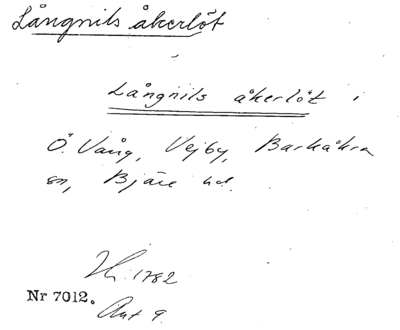 Långnils åkerlöt
Långnils åkerlöt i
Ö. Vång, Vejby, Barkåkra
sn, Bjäre hd.
H. 1782
Nr 7012.
Akt 9